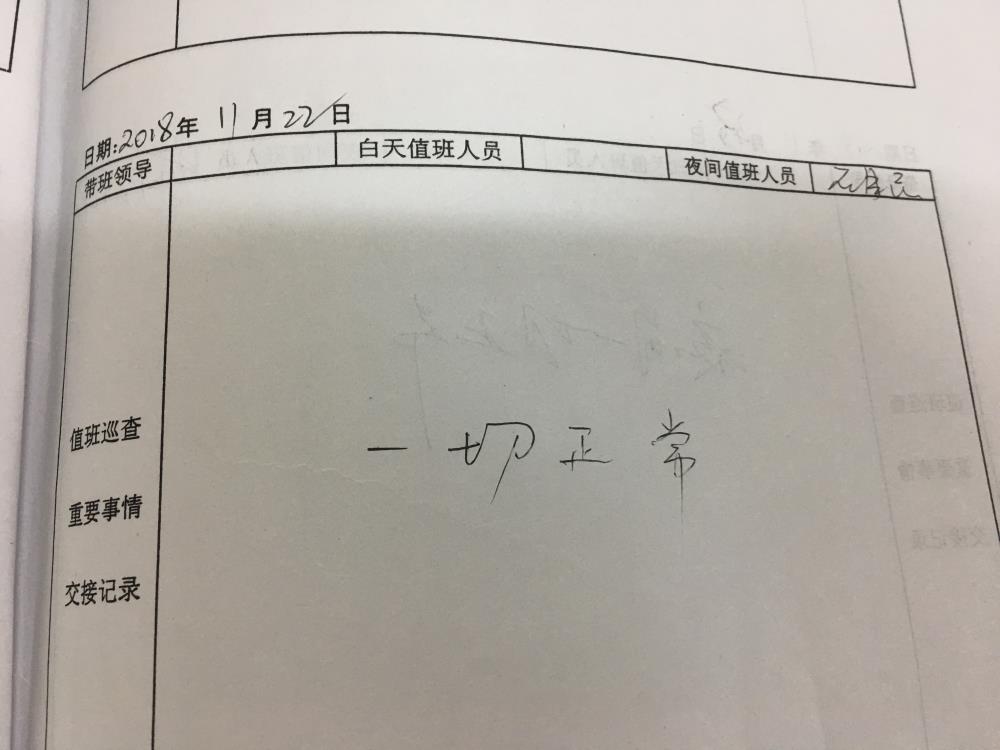 日期:2018年 11月22日
带班领导 白天值班人员 夜间值班人员
值班巡查
一切正常
重要事情
交接记录